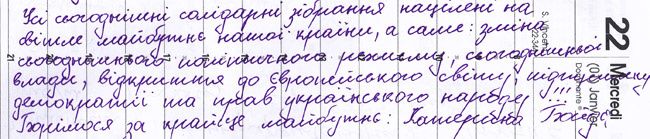 Усі сьогоднішні солідарні зібрання націлені на
світле майбутнє нашої країни, а саме: зміна
сьогоднішнього політичного режиму, сьогоднішньої
влади, відкриття до Європейського світу, підтримку
демократії та прав українського народу!!!
Борімося за краще майбутнє: Катерина
22
Mercredi
(01) Janvier
S. Vincent
21